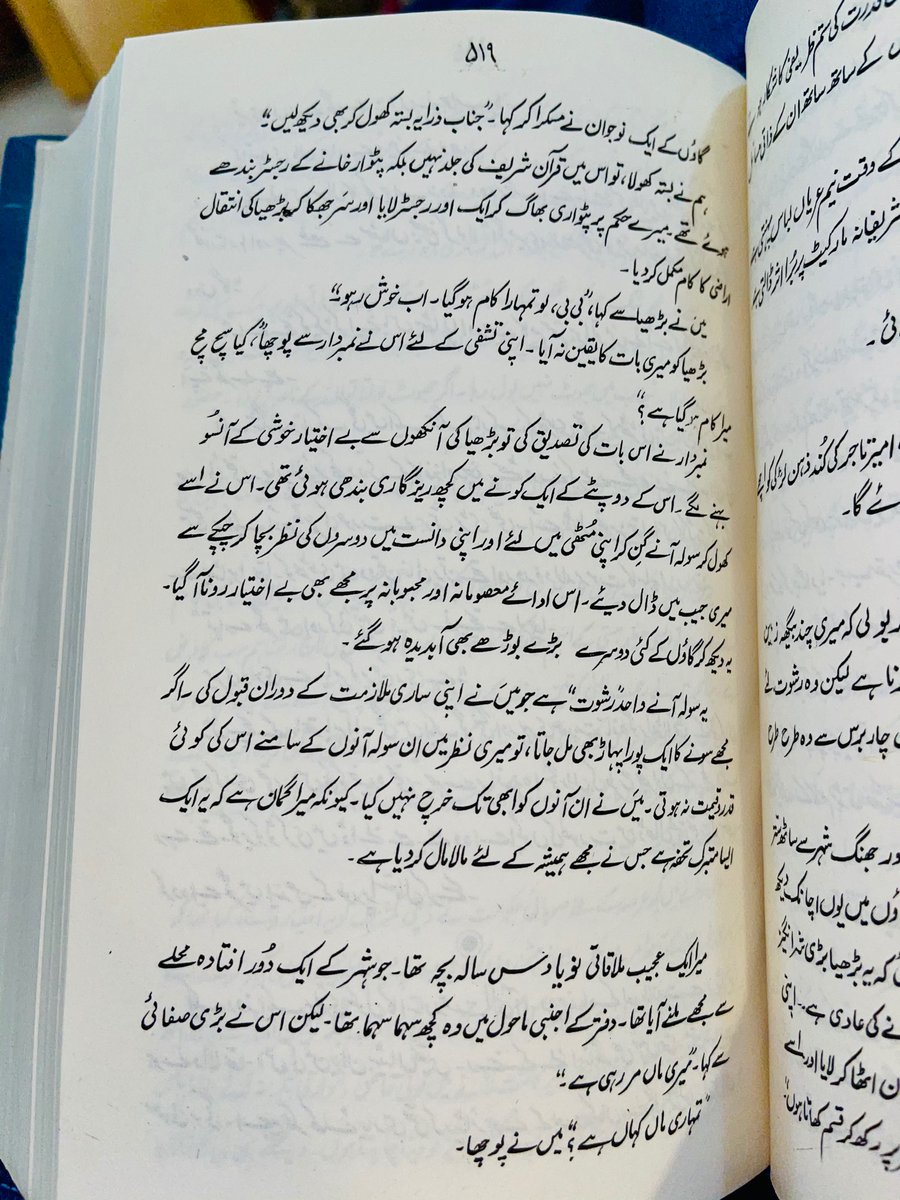 ۵۱۹
گاؤں کے ایک نوجوان نے مسکرا کر کہا۔ "جناب ذرا یہ بستہ کھول کر بھی دیکھ لیں۔"
ہم نے بستہ کھولا، تو اس میں قرآن شریف کی جلد نہیں بلکہ پٹوار خانے کے رجسٹر بندھے
ہوئے تھے۔ میرے حکم پر پٹواری بھاگ کر ایک اور رجسٹر لایا اور سر جھکا کر بڑھیا کی انتقال
اراضی کا کام مکمل کر دیا۔
میں نے بڑھیا سے کہا، "بی بی، لو تمہارا کام ہو گیا۔ اب خوش رہو۔"
بڑھیا کو میری بات کا یقین نہ آیا۔ اپنی تشفی کے لئے اس نے نمبردار سے پوچھا، "کیا سچ مچ
میرا کام ہو گیا ہے؟"
نمبردار نے اس بات کی تصدیق کی تو بڑھیا کی آنکھوں سے بے اختیار خوشی کے آنسو
بہنے لگے۔ اس کے دوپٹے کے ایک کونے میں کچھ ریزگاری بندھی ہوئی تھی۔ اس نے اسے
کھول کر سولہ آنے گن کر اپنی مُٹھی میں لئے اور اپنی دانست میں دوسروں کی نظر بچا کر چپکے سے
میری جیب میں ڈال دیئے۔ اس ادائے معصومانہ اور محبوبانہ پر مجھے بھی بے اختیار رونا آ گیا۔
یہ دیکھ کر گاؤں کے کئی دوسرے بڑے بوڑھے بھی آبدیدہ ہو گئے۔
یہ سولہ آنے واحد "رشوت" ہے جو میں نے اپنی ساری ملازمت کے دوران قبول کی۔ اگر
مجھے سونے کا ایک پورا پہاڑ بھی مل جاتا، تو میری نظر میں ان سولہ آنوں کے سامنے اس کی کوئی
قدر و قیمت نہ ہوتی۔ میں نے ان آنوں کو ابھی تک خرچ نہیں کیا۔ کیونکہ میرا گمان ہے کہ یہ ایک
ایسا متبرک تحفہ ہے جس نے مجھے ہمیشہ کے لئے مالا مال کر دیا ہے۔
میرا ایک عجیب ملاقاتی نو یا دس سالہ بچہ تھا۔ جو شہر کے ایک دُور افتادہ محلے
سے مجھے ملنے آیا تھا۔ دفتر کے اجنبی ماحول میں وہ کچھ سہما سہما تھا۔ لیکن اس نے بڑی صفائی
سے کہا۔ "میری ماں مر رہی ہے۔"
"تمہاری ماں کہاں ہے؟" میں نے پوچھا۔
کے وقت نیم عریاں لباس
شریفانہ مارکیٹ پر بُرا اثر ڈالتی
امیر تاجر کی کُند ذہن لڑکی کو
ئے گا۔
بولی کہ میری چند بیگھہ زمین
نا ہے لیکن وہ رشوت
چار برس سے وہ طرح طرح
ور جھنگ شہر سے ساٹھ
ؤں میں یوں اچانک دیکھ
کہ یہ بڑھیا بڑی شر انگیز
نے کی عادی ہے۔ اپنی
اٹھا کر لایا اور اسے
پر رکھ کر قسم کھاتا ہوں"